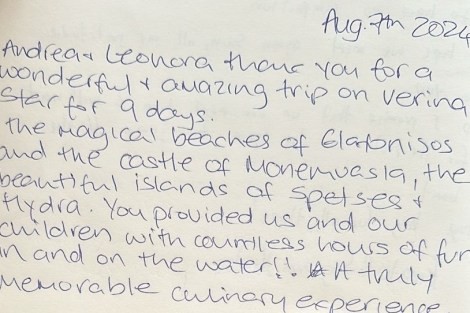 Aug. 7th 2024
Andrea & Leonora thank you for a
wonderful & amazing trip on verina
Star for 9 days.
The magical beaches of Elafonisos
and the castle of Monemvasia, the
beautiful islands of Spetses &
Hydra. You provided us and our
children with countless hours of fun
in and on the water!! A truly
memorable culinary experience